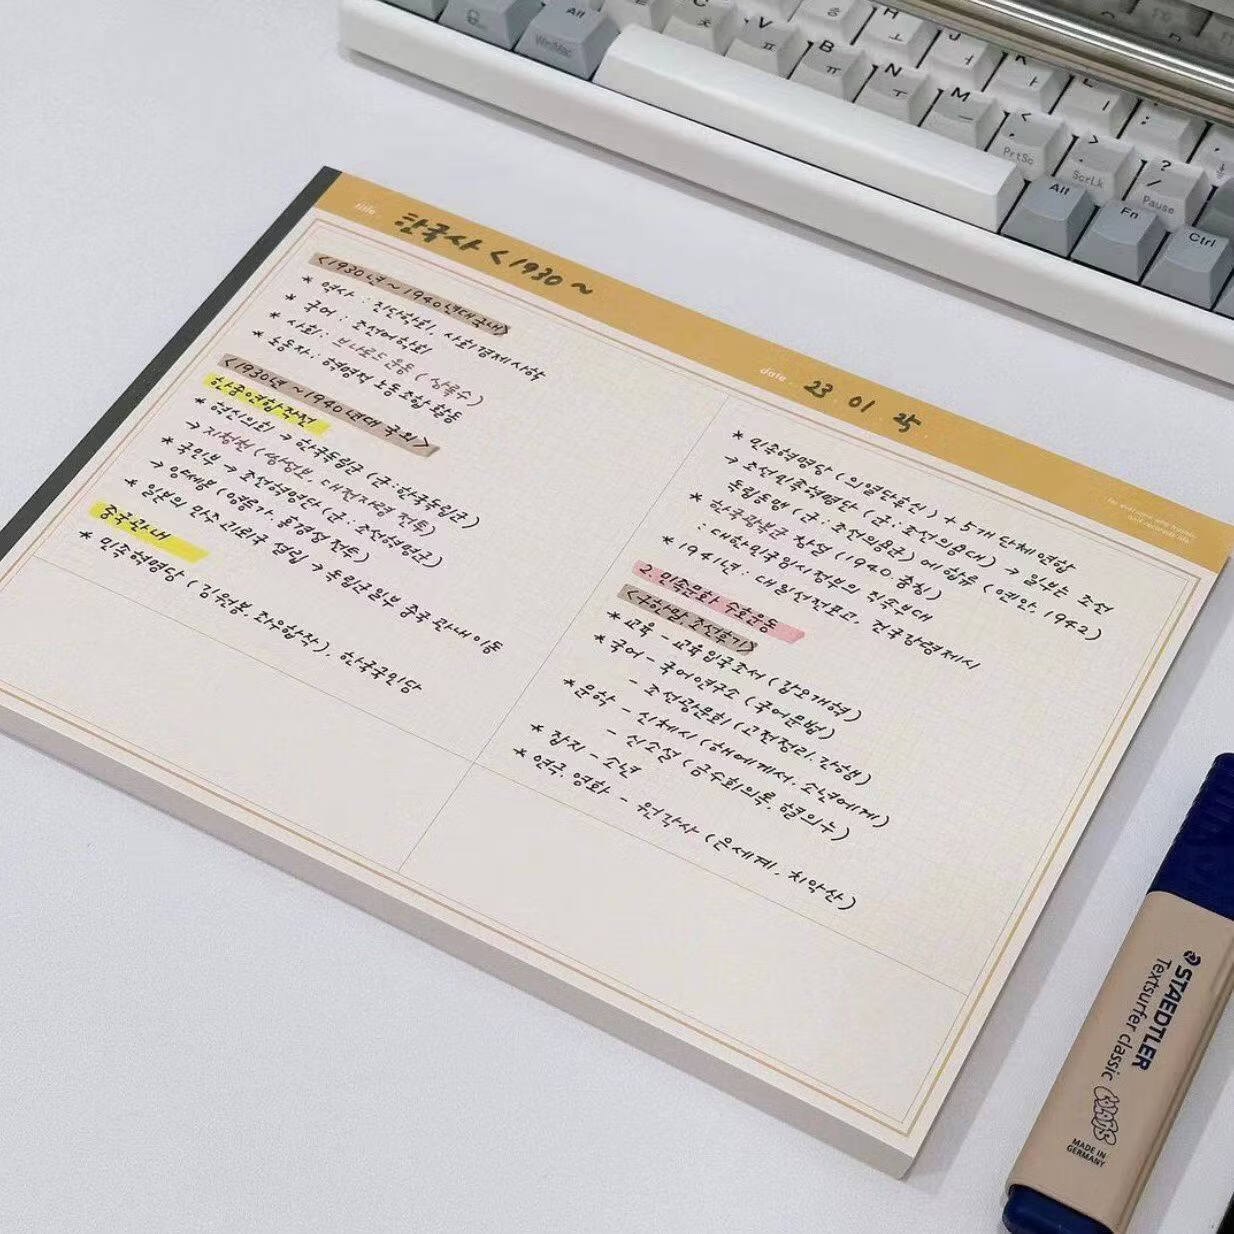 title
한국사 < 1930 ~
date
23. 01. 25
<1930년 ~ 1940년대 국내>
* 역사 : 진단학회, 사회경제사학
* 국어 : 조선어학회
* 사회 : 브나로드 운동 (상록수)
* 노동자 : 혁명적 노동조합 활동
<1930년 ~ 1940년대 국외>
한중연합작전
* 혁신의회 → 한국독립군 (군:한국독립군)
→ 지청천 (쌍성보, 대전자령 전투)
* 국민부 → 조선혁명단 (군:조선혁명군)
→ 양세봉 (영릉가, 흥경성 전투)
* 일부의 만주 → 독립군일부 중국관내이동
중국관내
* 민족혁명당 (김원봉, 좌우합작), 한국국민당
* 민족혁명당 (의열단中心) + 5개 단체 연합
→ 조선민족혁명단 (군:조선의용대) → 일부는 조선
독립동맹 (군:조선의용군)에 합류 (연안, 1942)
* 한국광복군 창설 (1940. 충칭)
: 대한민국임시정부의 직속부대
* 1941년 : 대일선전포고, 건국강령제시
2. 민족문화 수호운동
<구한말 조선후기>
* 교육 - 교육입국조서 (갑오개혁)
* 국어 - 국어연구소 (국어문법)
- 조선광문회 (고전정리, 간행)
* 문학 - 신체시 (해에게서 소년에게)
- 신소설 (금수회의록, 혈의누)
* 잡지 - 소년
* 연극, 영화 - 원각사 (은세계, 치악산)
Alt
Win/Mac
V ㅍ
B ㅠ
N ㅜ
M ㅡ
H ㅗ
J ㅓ
K ㅏ
< , PrtSc
> . ScrLk
? / Pause
Alt
Fn
Ctrl
STAEDTLER
Textsurfer classic
MADE IN
GERMANY